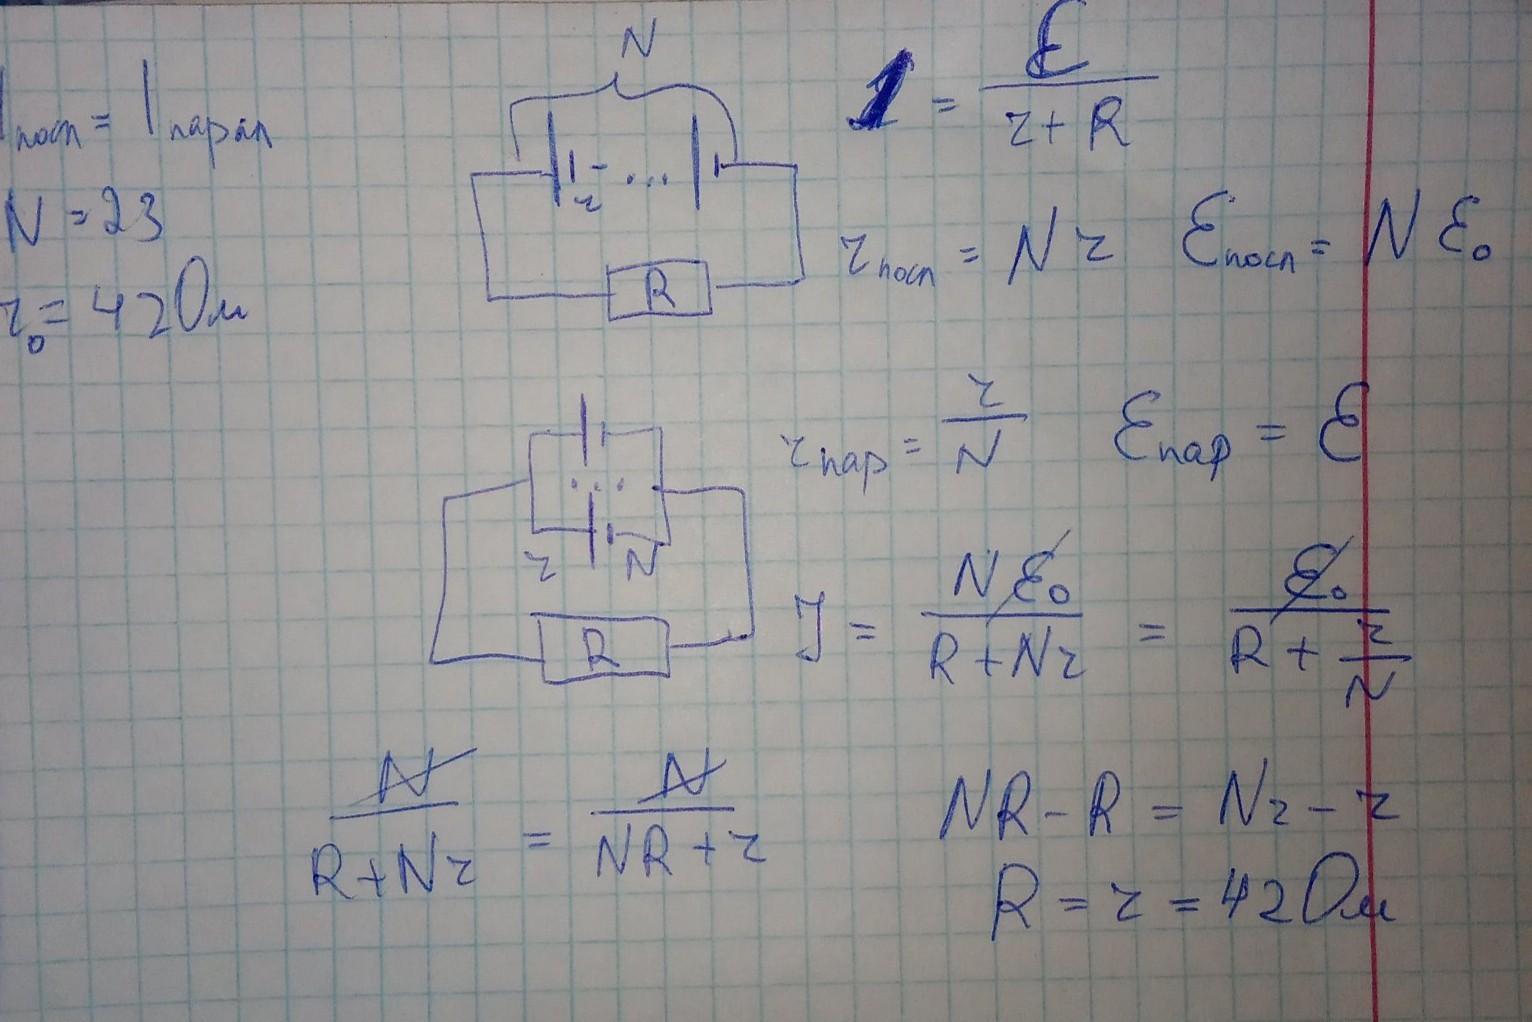 Iпосл = Iпарал
N = 23
r₀ = 42 Ом
N
r ...
R
I = ℰ / (r + R)
rпосл = Nr ℰпосл = Nℰ₀
...
r N
R
rпар = r / N ℰпар = ℰ
I = Nℰ₀ / (R + Nr) = ℰ₀ / (R + r/N)
N / (R + Nr) = N / (NR + r)
NR - R = Nr - r
R = r = 42 Ом